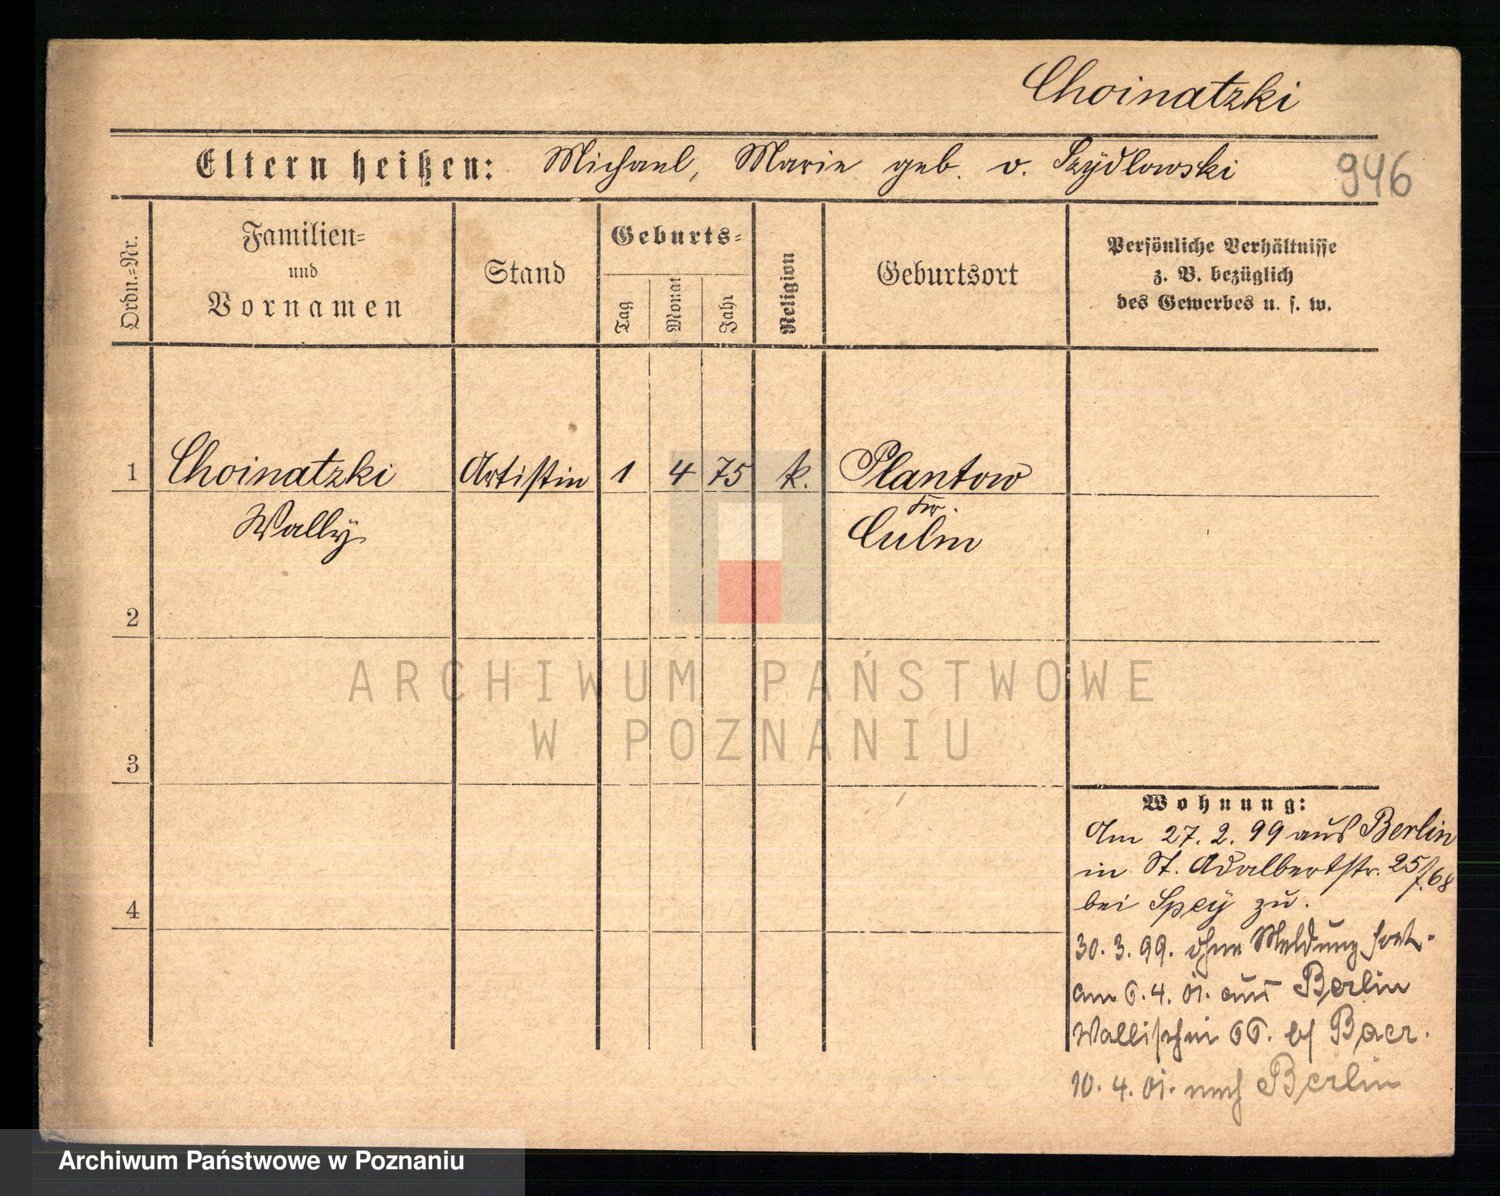 Choinatzki
Eltern heißen: Michael, Marie geb. v. Szÿdlowski
946
Ordn.=Nr.
Familien=
und
Vornamen
Stand
Geburts=
Tag
Monat
Jahr
Religion
Geburtsort
Persönliche Verhältnisse
z. B. bezüglich
des Gewerbes u. s. w.
1 Choinatzki Artistin 1 4 75 k. Plantow
Wallÿ
Kr.
Culm
2
ARCHIWUM PAŃSTWOWE
W POZNANIU
3
Wohnung:
Am 27. 2. 99 aus Berlin
in St. Adalbertstr. 25/
bei Speÿ zu.
4
30. 3. 99. ohne Meldung fort.
am 6. 4. 01. aus Berlin
Wallischei 66. b/ Baer.
10. 4. 01. nach Berlin
Archiwum Państwowe w Poznaniu